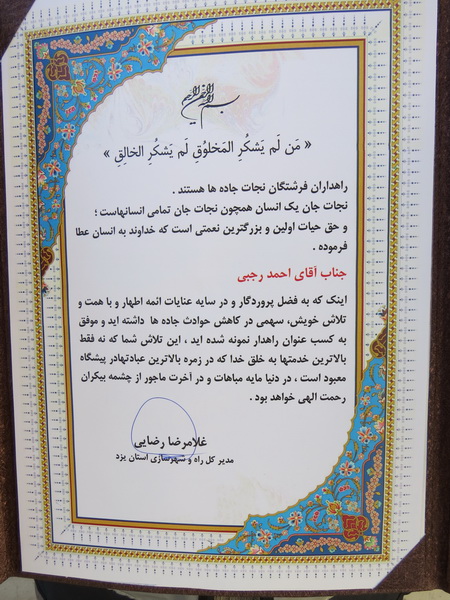 بسم الله الرحمن الرحیم
« مَن لَم یَشکُرِ المَخلوُقِ لَم یَشکُرِ الخالِقِ »
راهداران فرشتگان نجات جاده ها هستند .
نجات جان یک انسان همچون نجات جان تمامی انسانهاست ؛
و حق حیات اولین و بزرگترین نعمتی است که خداوند به انسان عطا
فرموده .
جناب آقای احمد رجبی
اینک که به فضل پروردگار و در سایه عنایات ائمه اطهار و با همت و
تلاش خویش، سهمی در کاهش حوادث جاده ها داشته اید و موفق
به کسب عنوان راهدار نمونه شده اید ، این تلاش شما که نه فقط
بالاترین خدمتها به خلق خدا که در زمره بالاترین عبادتهادر پیشگاه
معبود است ، در دنیا مایه مباهات و در آخرت ماجور از چشمه بیکران
رحمت الهی خواهد بود .
غلامرضا رضایی
مدیر کل راه و شهرسازی استان یزد